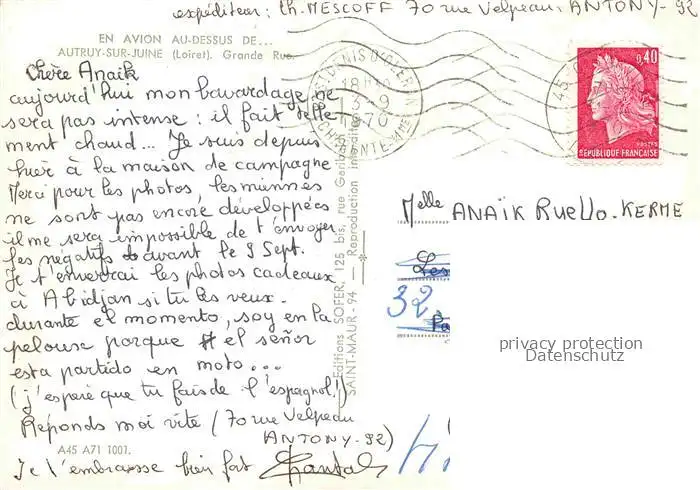 expéditeur: Ch. MESCOFF 70 rue Velpeau, ANTONY-92
EN AVION AU-DESSUS DE...
AUTRUY-SUR-JUINE (Loiret). Grande Rue.
Chère Anaïk
aujourd'hui mon bavardage ne
sera pas intense : il fait telle
ment chaud... Je suis depuis
hier à la maison de campagne
Merci pour les photos, les miennes
ne sont pas encore développées
il me sera impossible de t'envoyer
les négatifs avant le 9 Sept.
Je t'enverrai les photos cadeaux
à Abidjan si tu les veux.
durante el momento, soy en la
pelouse porque el señor
esta partido en moto...
(j'espère que tu fais de l'espagnol!)
Réponds moi vite (70 rue Velpeau
ANTONY-92)
Je t'embrasse bien fort Chantal
A45 A71 1001.
Editions SOFER, 125 bis, rue Garib
SAINT-MAUR-94 — Reproduction interdite
ST DENIS D'OLERON
18H
13-9
1970
CHARENTE-MME
45
0,40
POSTES
REPUBLIQUE FRANÇAISE
Melle ANAÏK RUELLO-KERME
Les
32
Pa
44
privacy protection
Datenschutz